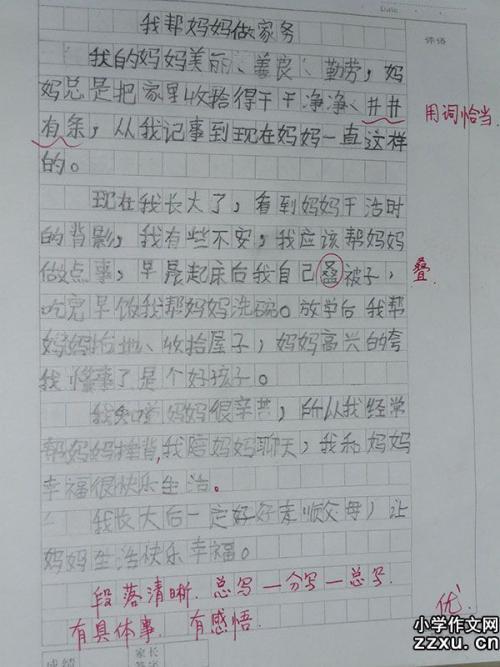 Date
评语
我帮妈妈做家务
我的妈妈美丽、善良、勤劳，妈
妈总是把家里收拾得干干净净、井井
有条，从我记事到现在妈妈一直这样
的。
用词恰当.
现在我长大了，看到妈妈干活时
的背影，我有些不安，我应该帮妈妈
做点事，早晨起床后我自己叠被子，
叠.
吃完早饭我帮妈妈洗碗。放学后我帮
妈妈拖地、收拾屋子，妈妈高兴的夸
我懂事了是个好孩子。
我知道妈妈很辛苦，所以我经常
帮妈妈捶背，我陪妈妈聊天，我和妈妈
幸福很快乐生活。
我长大后一定好好孝顺父母，让
妈妈生活快乐幸福。
段落清晰. 总写一分写一总写.
有具体事. 有感悟.
优.
成绩
家长
签字
小学作文网
zzxu.cn